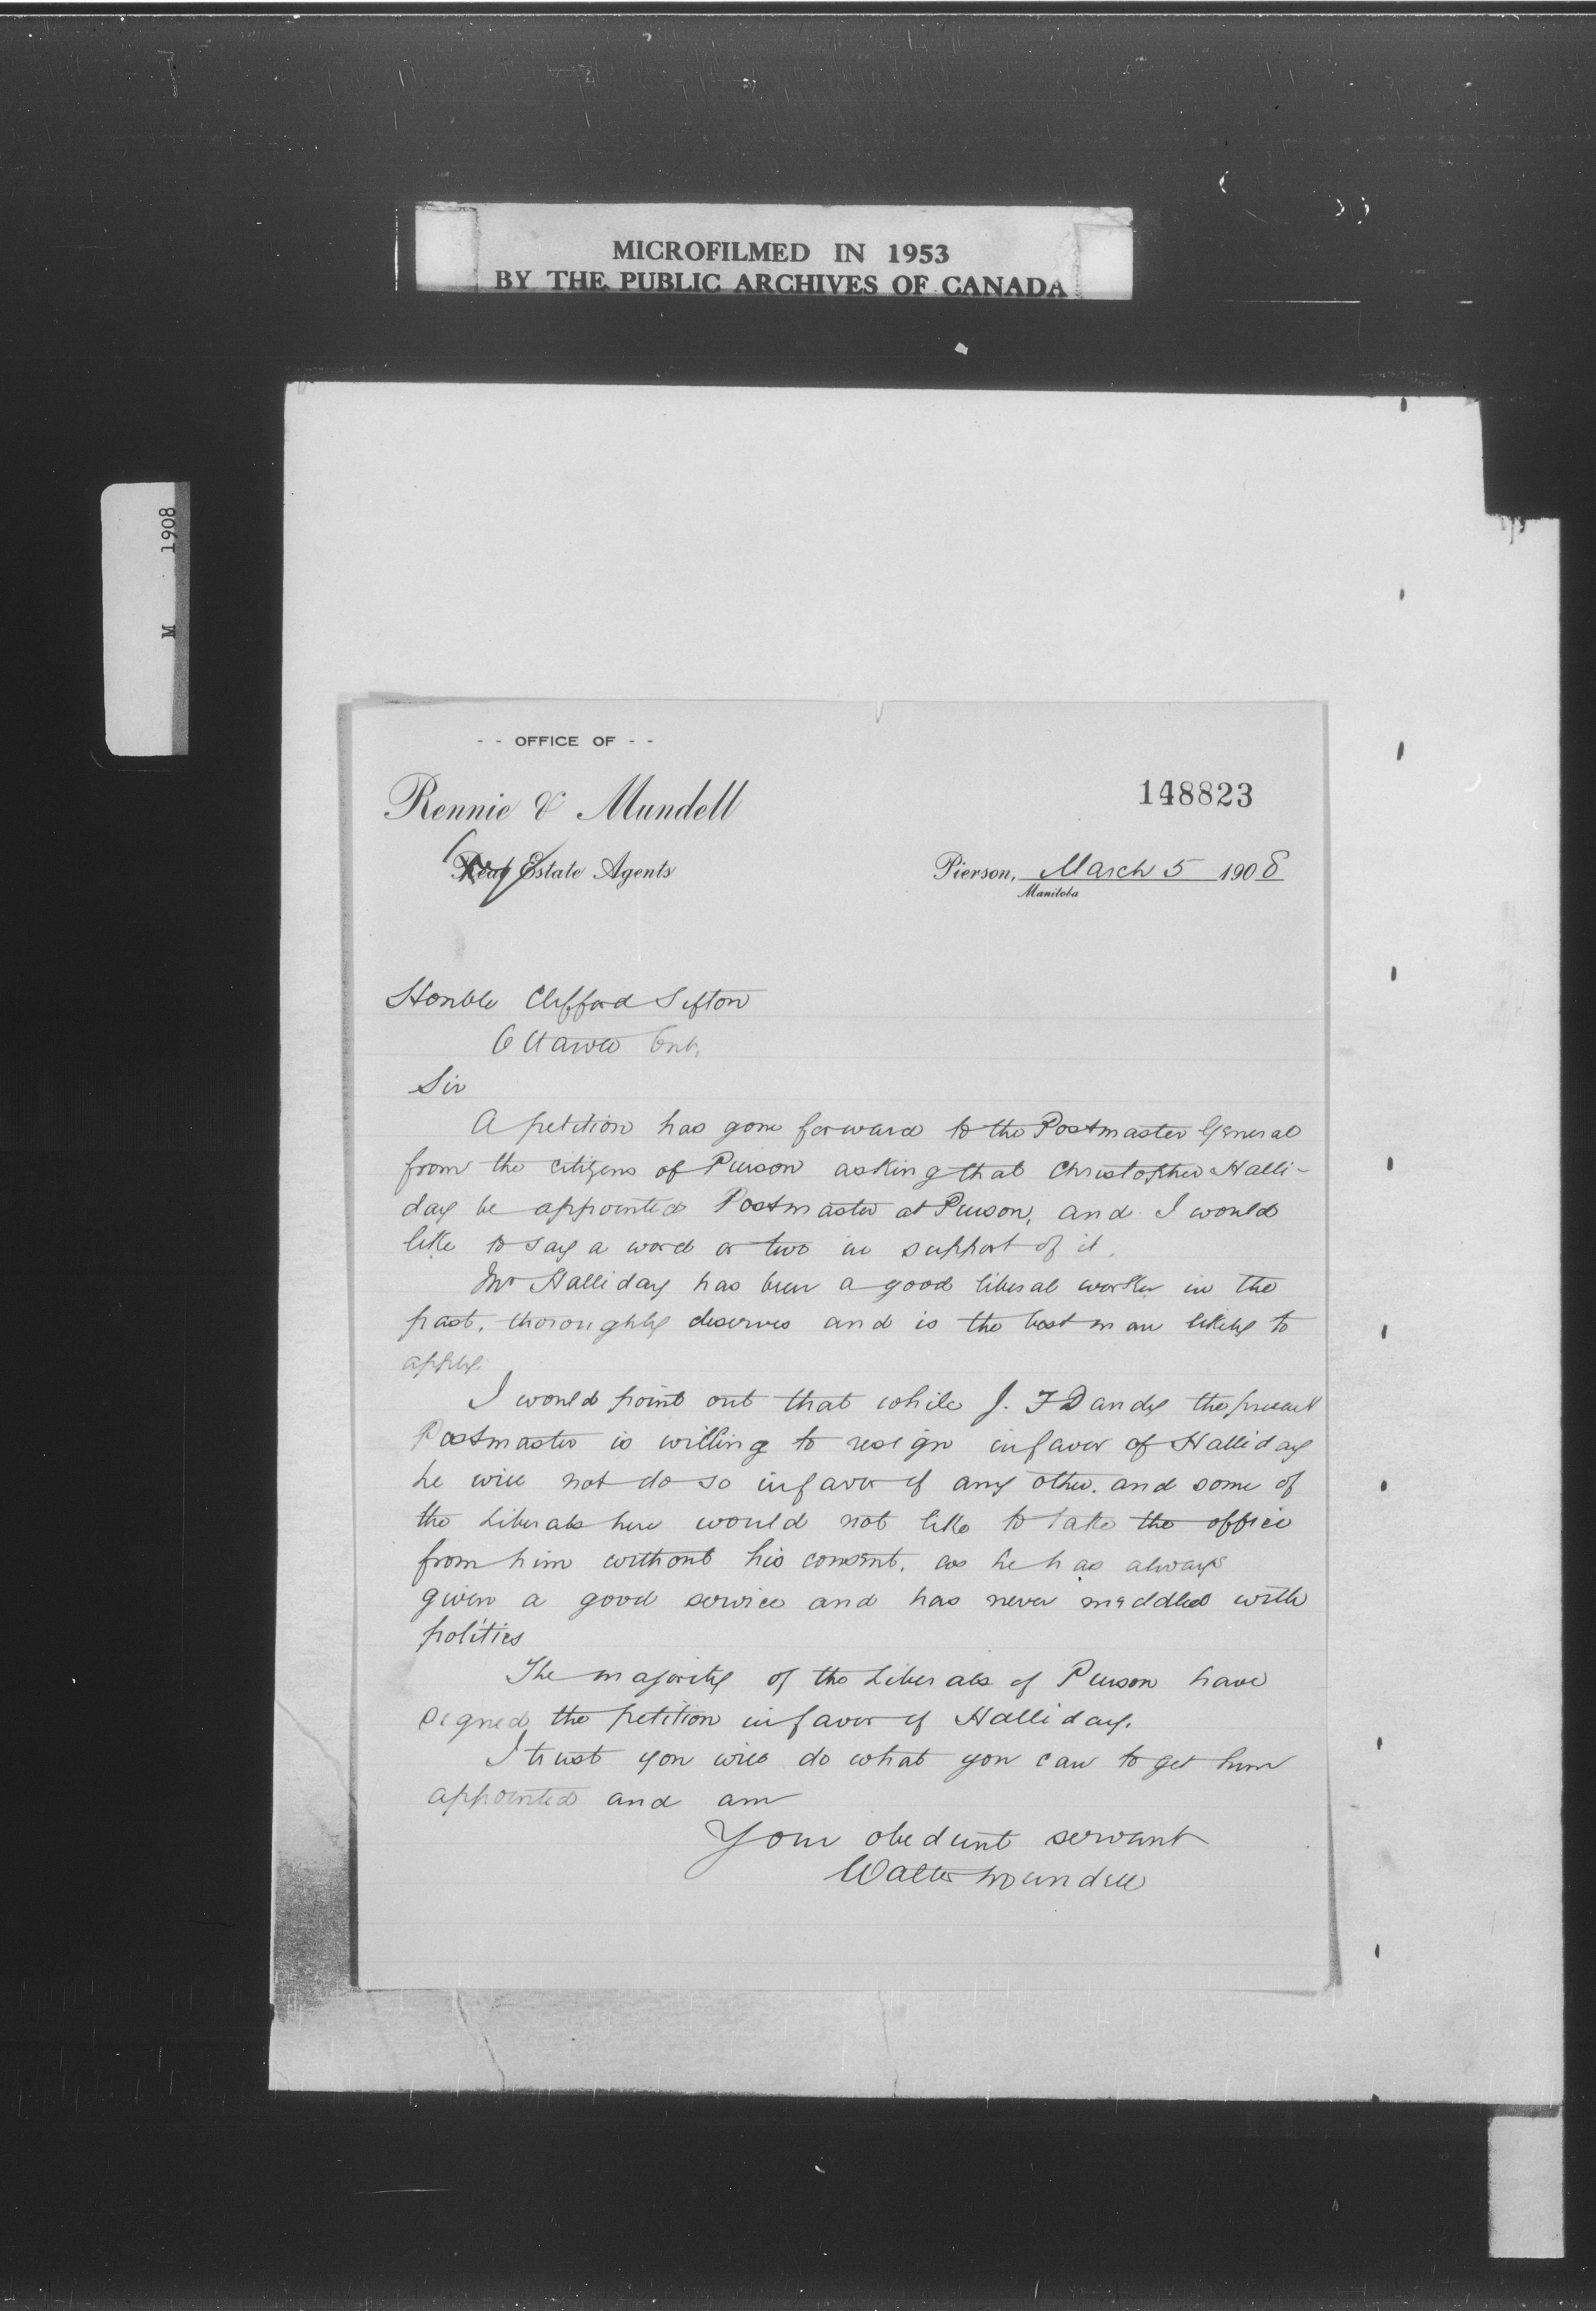 MICROFILMED IN 1953
BY THE PUBLIC ARCHIVES OF CANADA
M 1908
- - OFFICE OF - -
Rennie & Mundell
148823
Real Estate Agents
Pierson, March 5 1908
Manitoba
Honble Clifford Sifton
Ottawa Ont.
Sir
A petition has gone forward to the Postmaster General
from the citizens of Pierson asking that Christopher Halli-
day be appointed Postmaster at Pierson, and I would
like to say a word or two in support of it.
Mr Halliday has been a good liberal worker in the
past, thoroughly deserves and is the best man likely to
apply.
I would point out that while J. F Dandy the present
Postmaster is willing to resign in favor of Halliday
he will not do so in favor of any other. and some of
the Liberals here would not like to take the office
from him without his consent, as he has always
given a good service and has never meddled with
politics
The majority of the Liberals of Pierson have
signed the petition in favor of Halliday.
I trust you will do what you can to get him
appointed and am
Your obedient servant
Walter Mundell